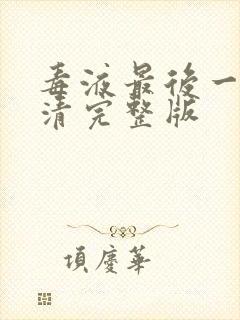 毒液最後一
清完整版
項慶華